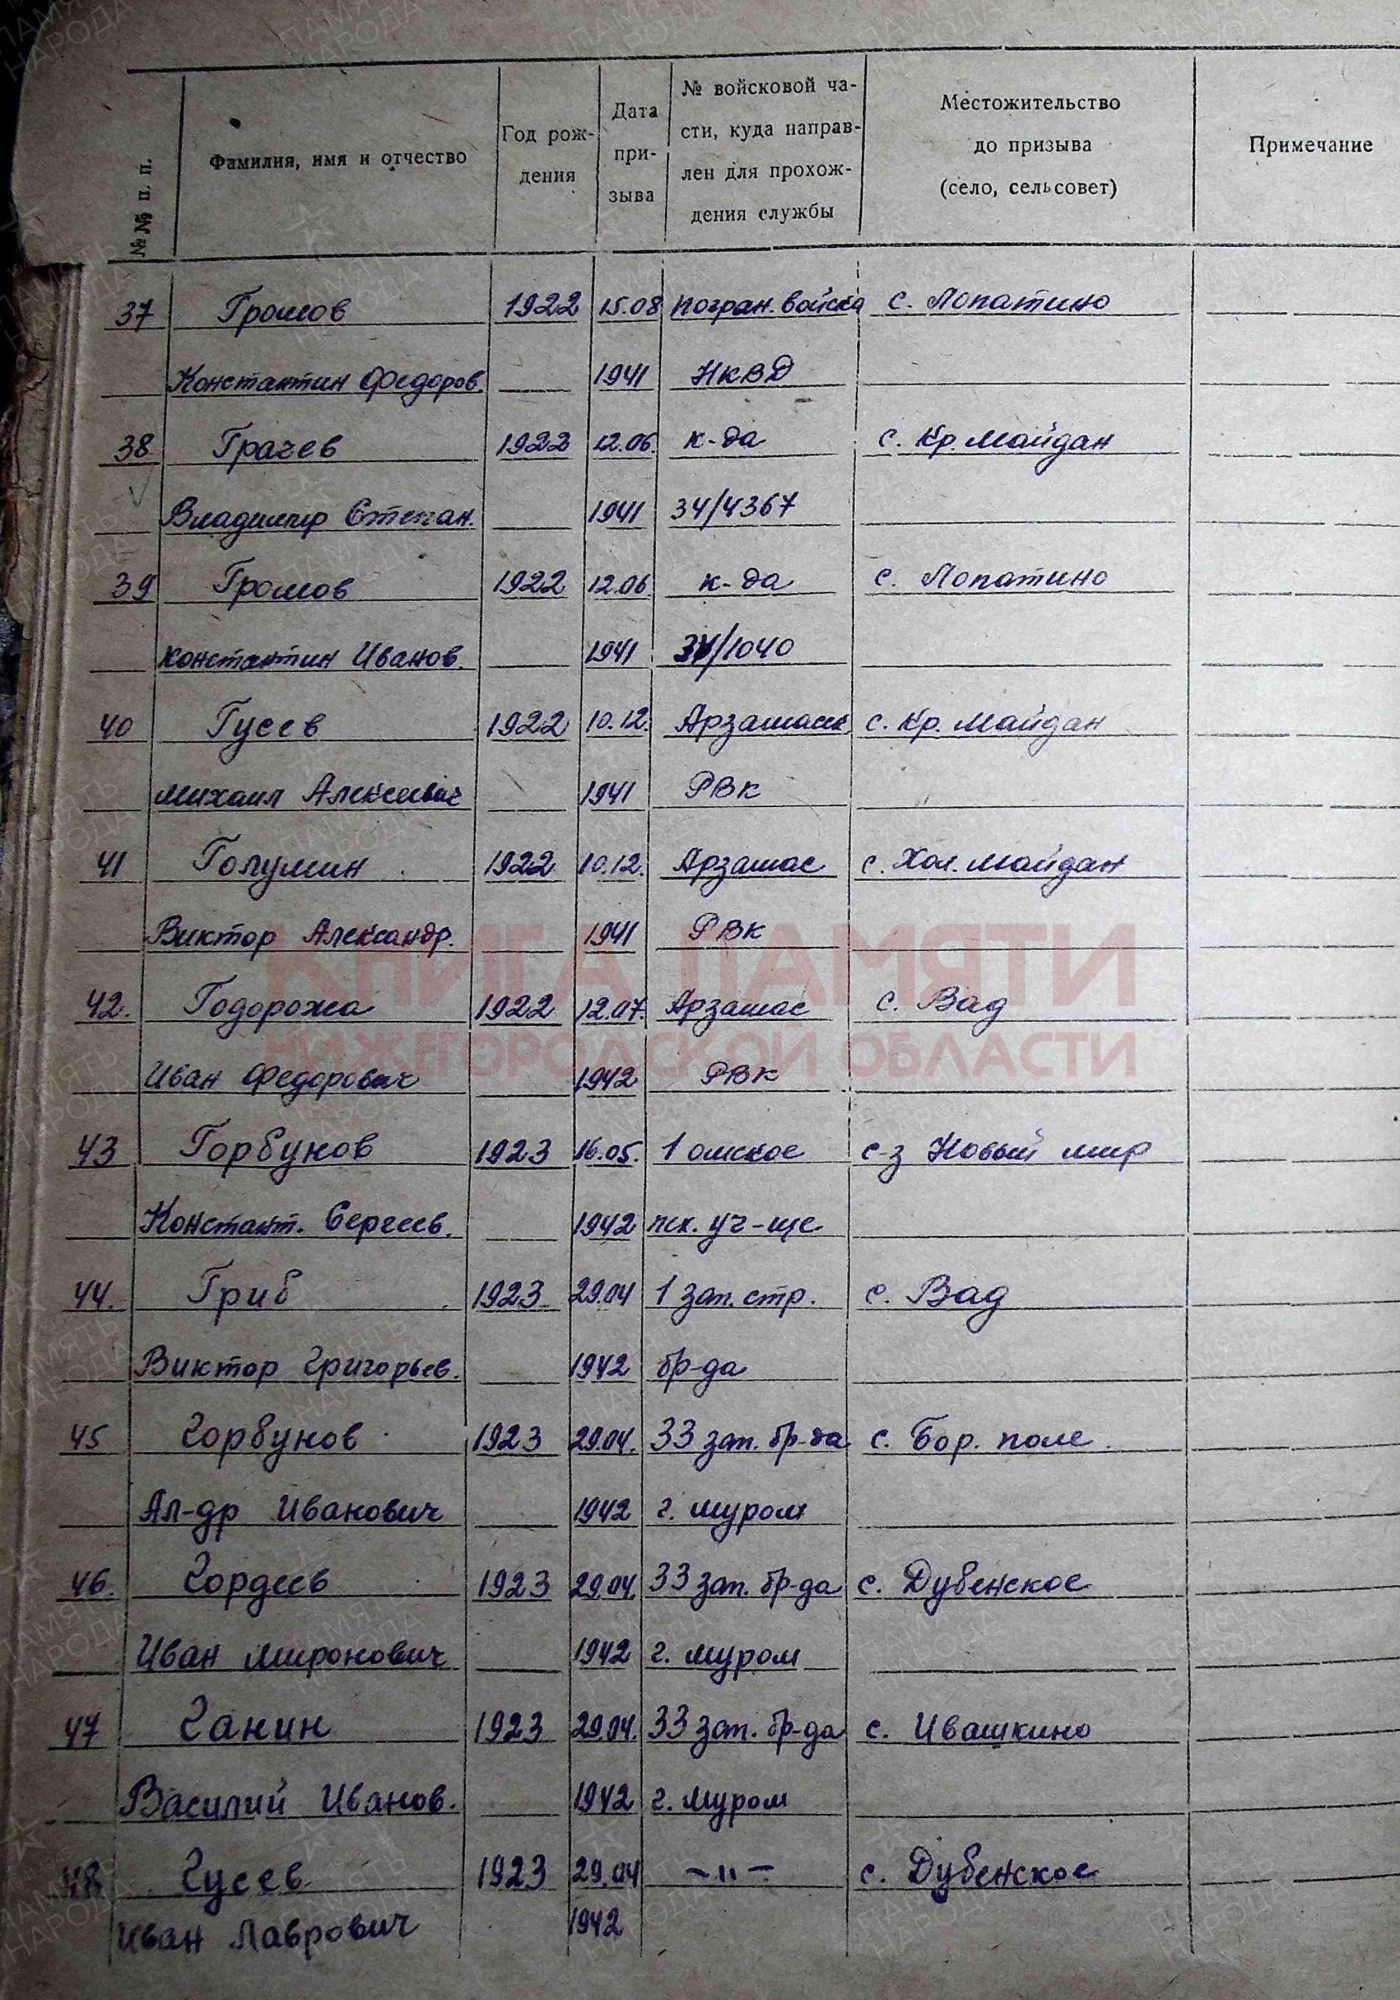 №№ п. п.
Фамилия, имя и отчество
Год рож-
дения
Дата
при-
зыва
№ войсковой ча-
сти, куда направ-
лен для прохож-
дения службы
Местожительство
до призыва
(село, сельсовет)
Примечание
37 Громов 1922 15.08 погран. войска с. Лопатино
Константин Федоров. 1941 НКВД
38 Грачев 1922 12.06. к-да с. Кр. Майдан
Владимир Степан. 1941 34/4367
39 Громов 1922 12.06. к-да с. Лопатино
Константин Иванов. 1941 34/1040
40 Гусев 1922 10.12. Арзамасск. с. Кр. Майдан
Михаил Алексеевич 1941 РВК
41 Голумин 1922 10.12. Арзамас с. Хол. Майдан
Виктор Александр. 1941 РВК
42. Годорожа 1922 12.07. Арзамас с. Вад
Иван Федорович 1942 РВК
43 Горбунов 1923 16.05. 1 омское с-з Новый мир
Констант. Сергеев. 1942 уч-ще
44. Гриб 1923 29.04 1 зап. стр. с. Вад
Виктор Григорьев. 1942 бр-да
45 Горбунов 1923 29.04. 33 зап. бр-да с. Бор. поле.
Ал-др Иванович 1942 г. Муром
46. Гордеев 1923 29.04. 33 зап. бр-да с. Дубенское
Иван Миронович 1942 г. Муром
47 Ганин 1923 29.04. 33 зап. бр-да с. Ивашкино
Василий Иванов. 1942 г. Муром
48 Гусев 1923 29.04 -"- с. Дубенское
Иван Лаврович 1942
КНИГА ПАМЯТИ
НИЖЕГОРОДСКОЙ ОБЛАСТИ
ПАМЯТЬ
НАРОДА